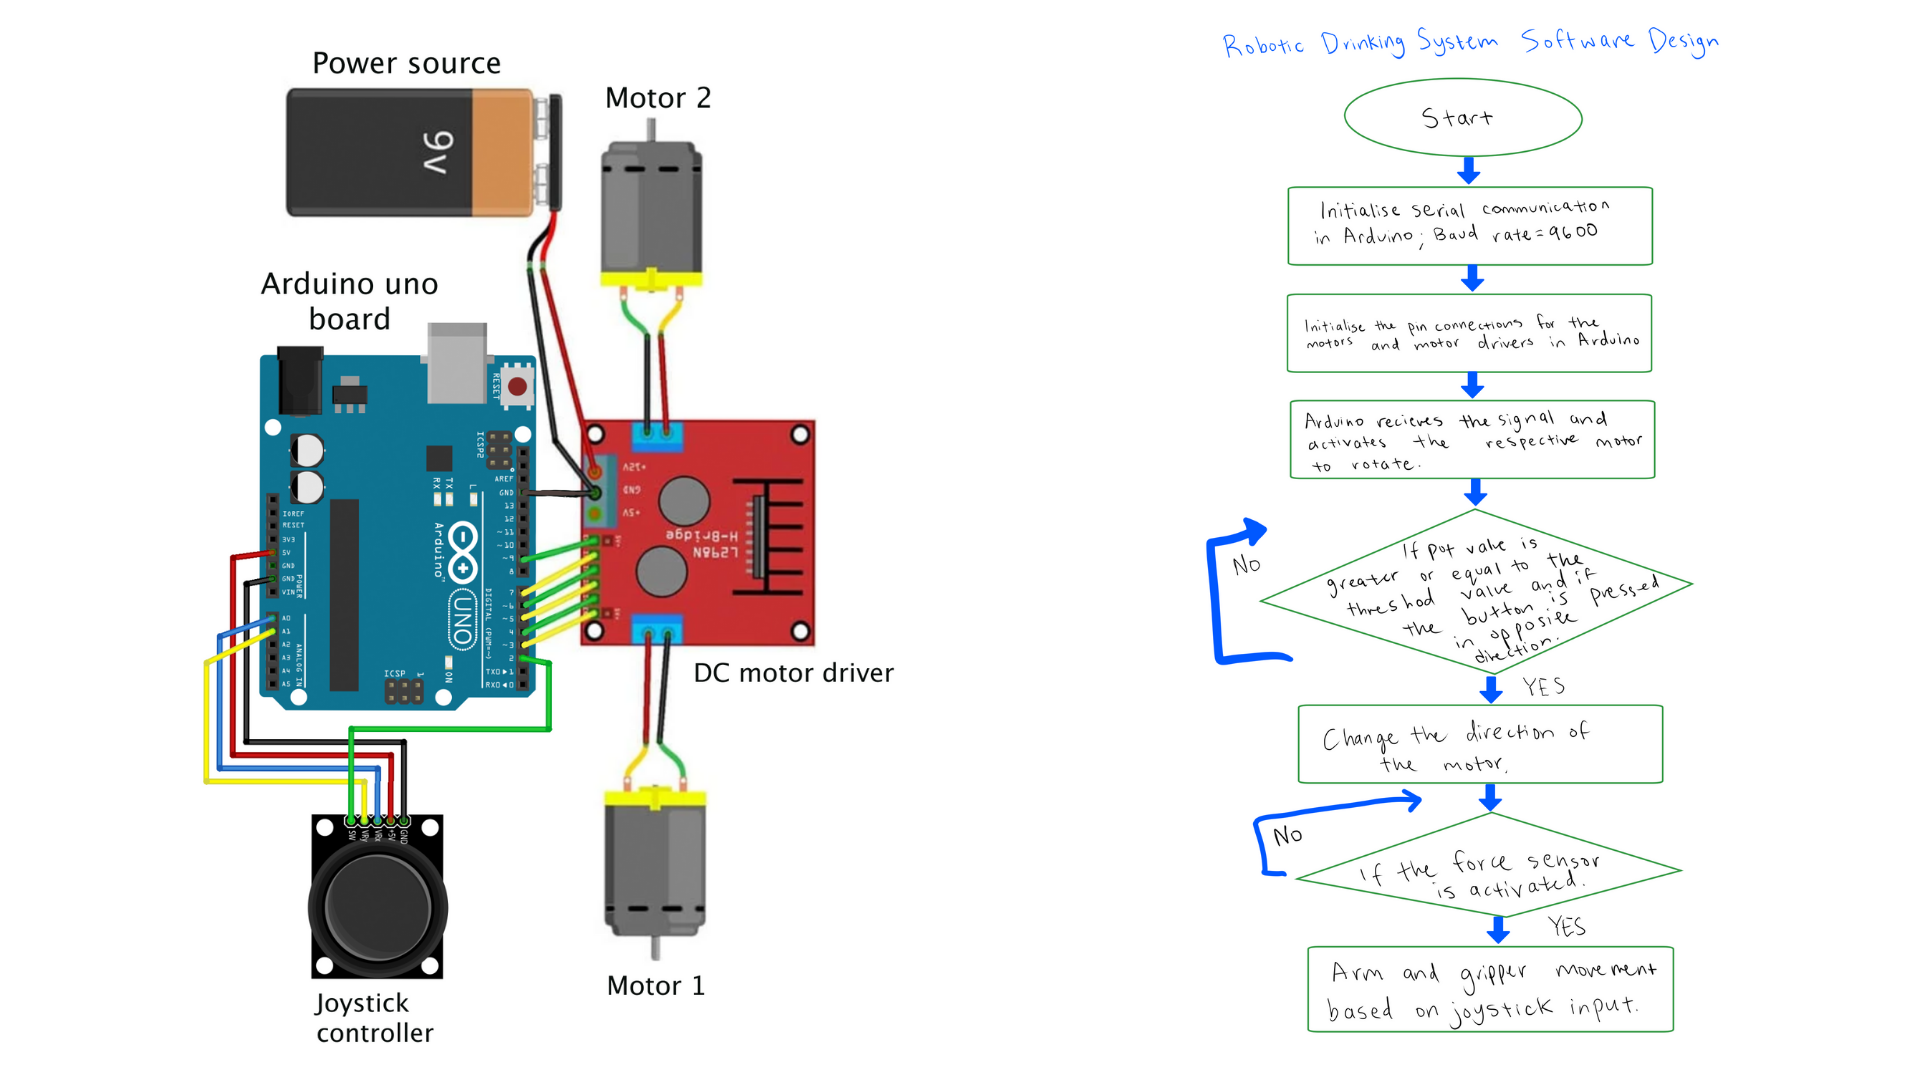 Power source
9v
Motor 2
Arduino uno
board
RESET
ICSP2
AREF
GND
13
12
~11
~10
~9
8
7
~6
~5
4
~3
2
TXD ▸ 1
RXD ◂ 0
DIGITAL (PWM=~)
RX
TX
L
Arduino™
UNO
ON
ICSP
1
IOREF
RESET
3V3
5V
GND
GND
VIN
POWER
A0
A1
A2
A3
A4
A5
ANALOG IN
+12V
GND
+5V
L298N
H-Bridge
DC motor driver
SW
VRy
VRx
+5V
GND
Joystick
controller
Motor 1
Robotic Drinking System Software Design
Start
Initialise serial communication
in Arduino; Baud rate=9600
Initialise the pin connections for the
motors and motor drivers in Arduino
Arduino recieves the signal and
activates the respective motor
to rotate.
If pot value is
greater or equal to the
threshod value and if
the button is pressed
in opposite
direction.
No
YES
Change the direction of
the motor.
No
If the force sensor
is activated.
YES
Arm and gripper movement
based on joystick input.